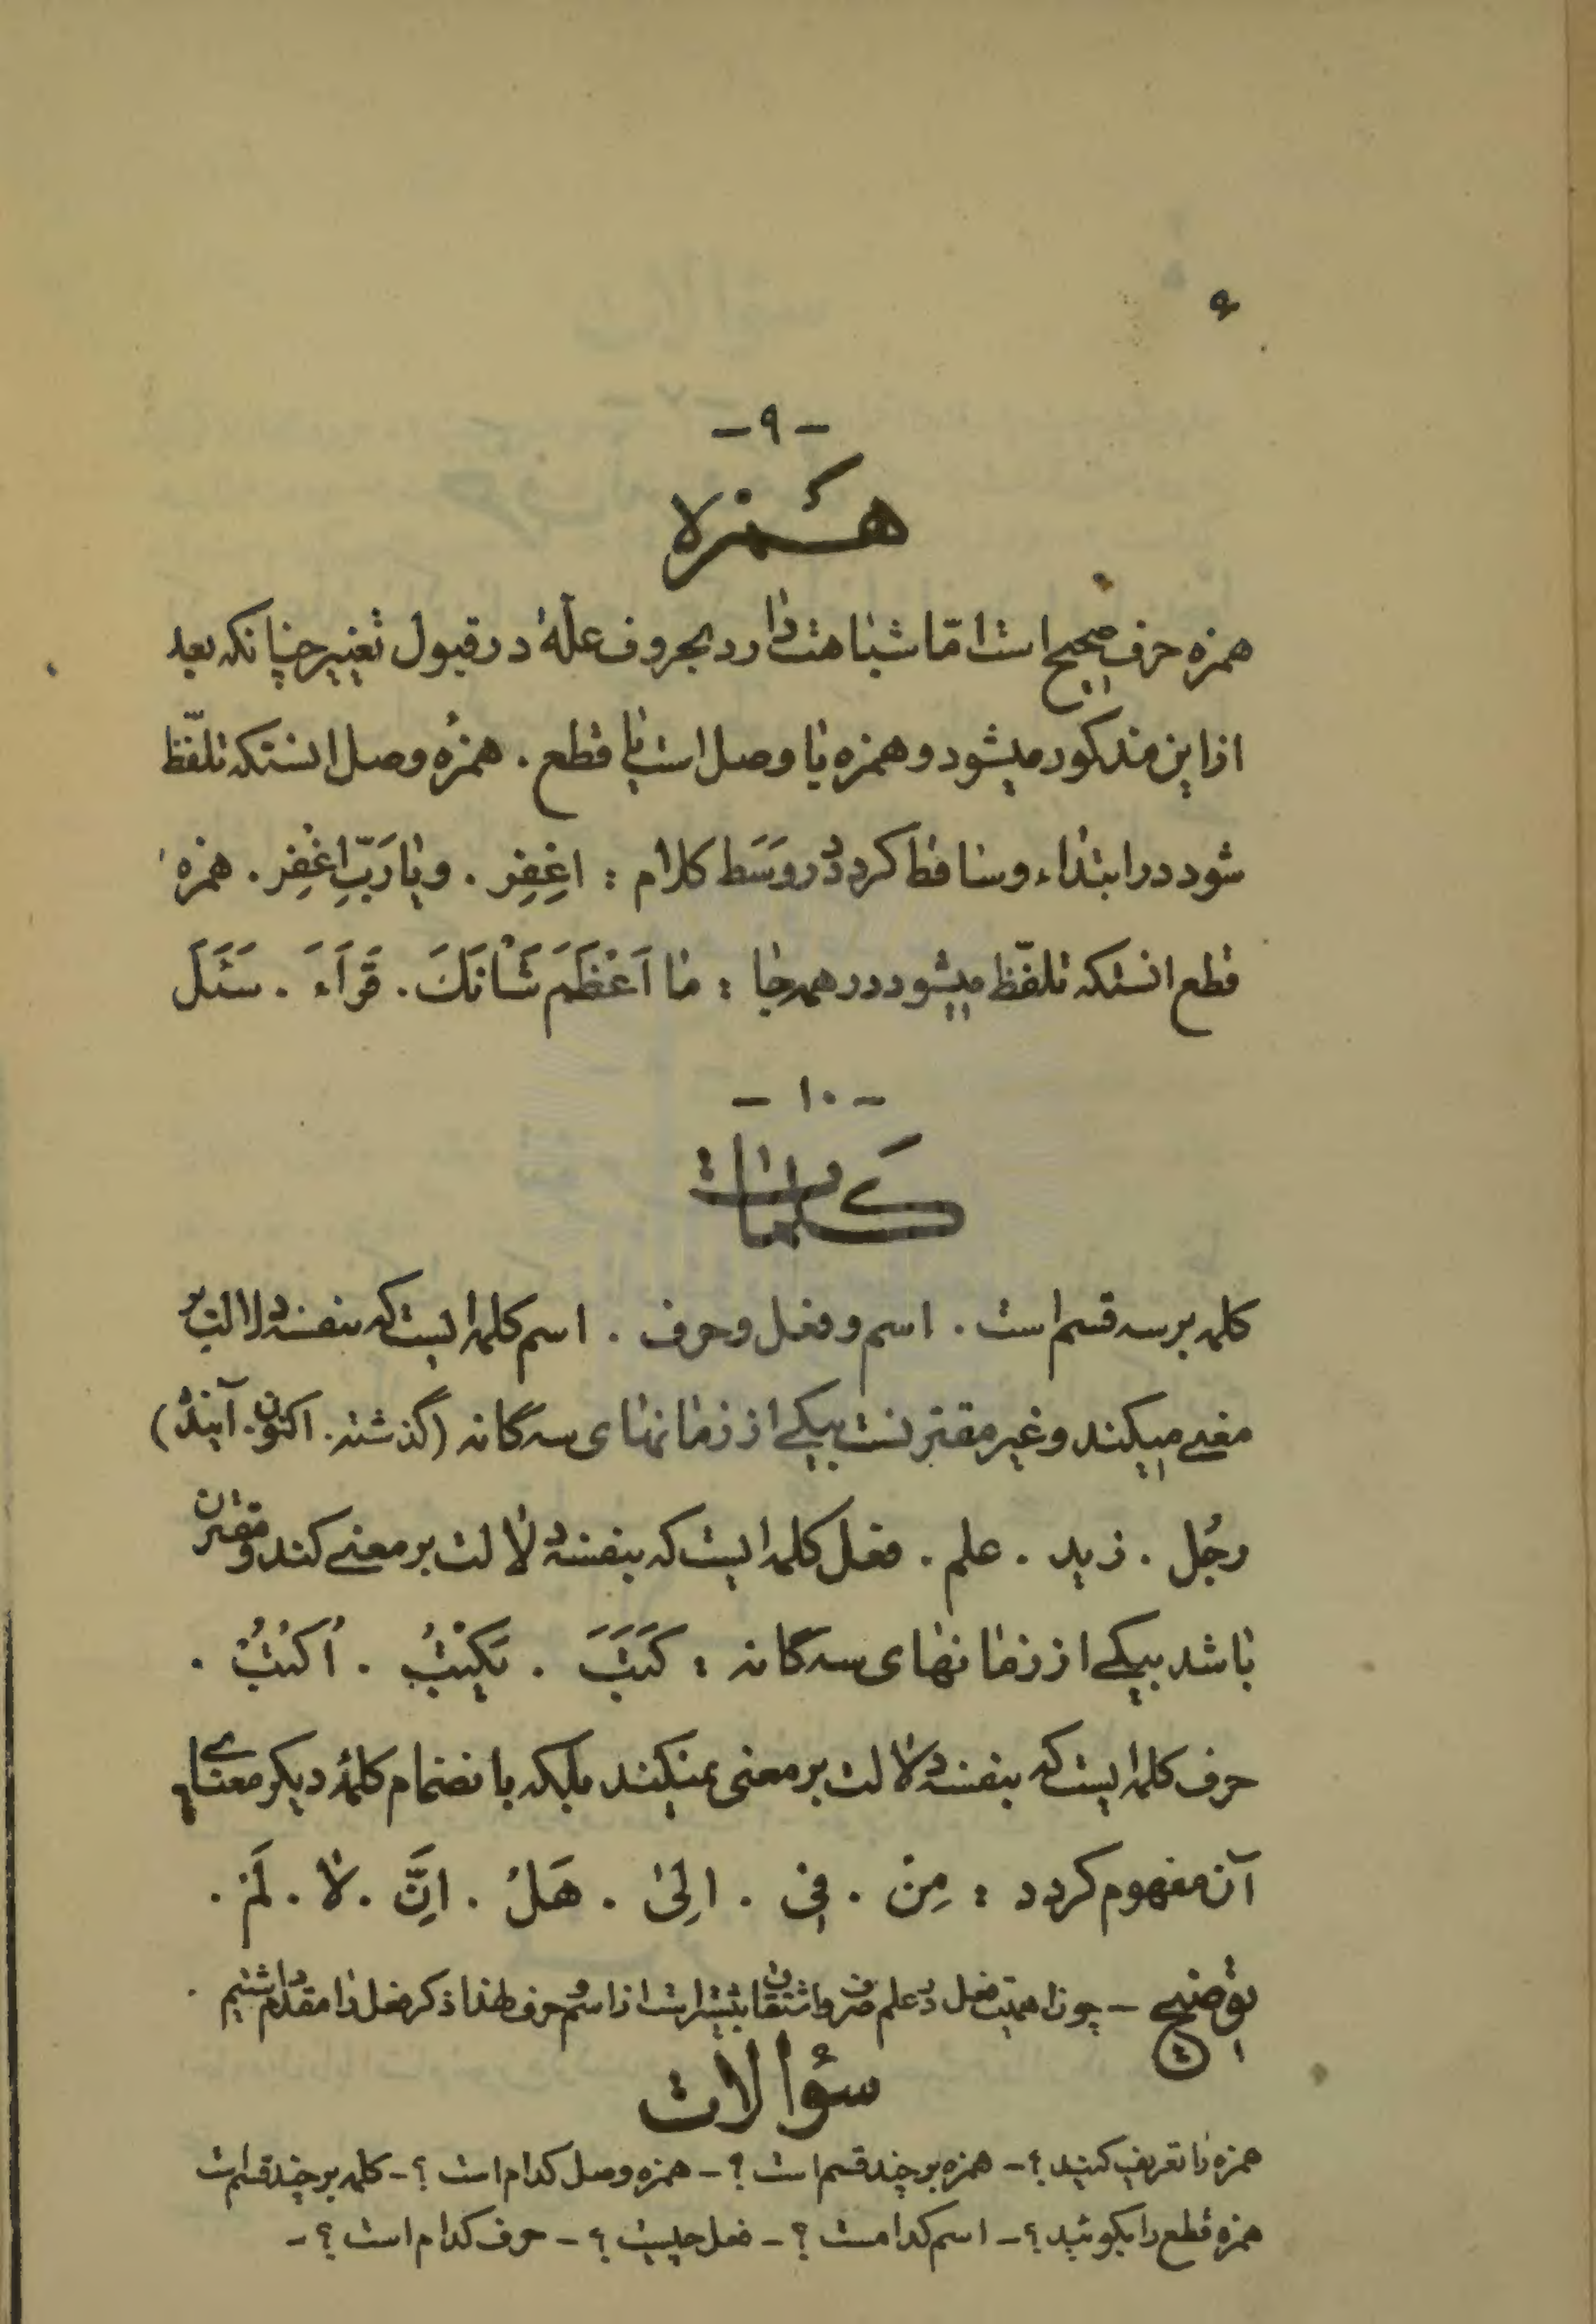 ۶
- ۹ -
همزه
همزه حرف صحیح است امّا شباهت دارد بحروف علّهٔ در قبول تغییر چنانکه بعد
از این مذکور میشود و همزه یا وصل است یا قطع . همزهٔ وصل انستکه تلفّظ
شود در ابتداء و ساقط کردد در وَسَط کلام : اغِفِر . و یا رَبِّ اغْفِر . همزه
قطع انستکه تلفّظ میشود در همه جا : ما اَعْظَمَ شَانَكَ . قَرَاَءَ . سَئَلَ
- ۱۰ -
کلمات
کلمه بر سه قسم است . اسم و فعل و حرف . اسم کلمه ایست که بنفسه دلالت بر
معنی میکند و غیر مقترنست بیکے از زمانهای سه گانه (گذشته . اکنون . آینده)
رجُل . زید . علم . فعل کلمه ایست که بنفسه دلالت بر معنے کند و مقترن
باشد بیکے از زمانهای سه گانه : كَتَبَ . يَكْتُبُ . اُكْتُبْ .
حرف کلمه ایست که بنفسه دلالت بر معنی نمیکند بلکه با نضمام کلمهٔ دیکر معنای
آن مفهوم کردد : مِنْ . فِی . اِلیٰ . هَلْ . اِنَّ . لا . لَمْ .
توضیح - چون اهمیت فعل در علم صرف و اشتقاق بیشتر است از اسم و حرف لهذا ذکر فعل را مقدم داشتیم .
سؤالات
همزه را تعریف کنید ؟ - همزه بر چند قسم است ؟ - همزه وصل کدام است ؟ - کلمه بر چند قسم است
همزه قطع را بکوئید ؟ - اسم کدامست ؟ - فعل چیست ؟ - حرف کدام است ؟ -